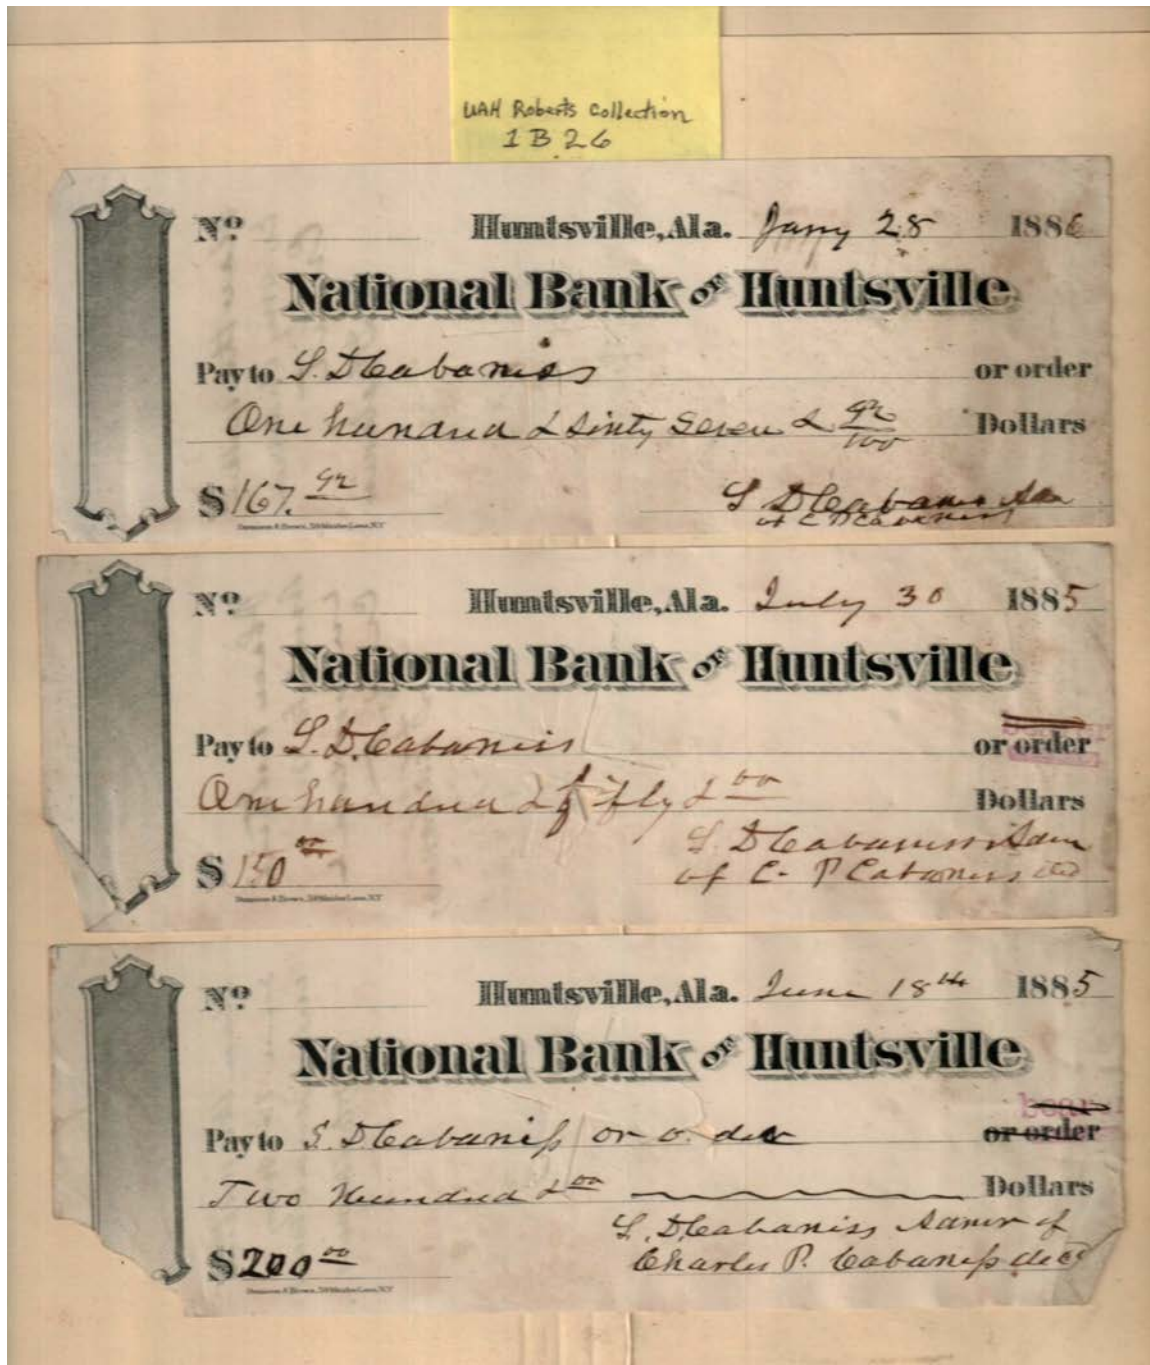 UAH Roberts Collection
1 B 26
No Huntsville, Ala. Jany 28 1886
National Bank of Huntsville
Pay to S. D Cabaniss or order
One hundred & sixty seven & 92/100 Dollars
$ 167. 92 S D Cabaniss Adm
of C P Cabaniss
No Huntsville, Ala. July 30 1885
National Bank of Huntsville
Pay to S. D. Cabaniss or order
One hundred & fifty & 00 Dollars
S. D Cabaniss Adm
$ 150 00 of C. P Cabaniss decd
No Huntsville, Ala. June 18th 1885
National Bank of Huntsville
Pay to S. D Cabaniss or order or order
Two Hundred & 00 Dollars
S. D Cabaniss Admr of
$ 200 00 Charles P. Cabaniss decd